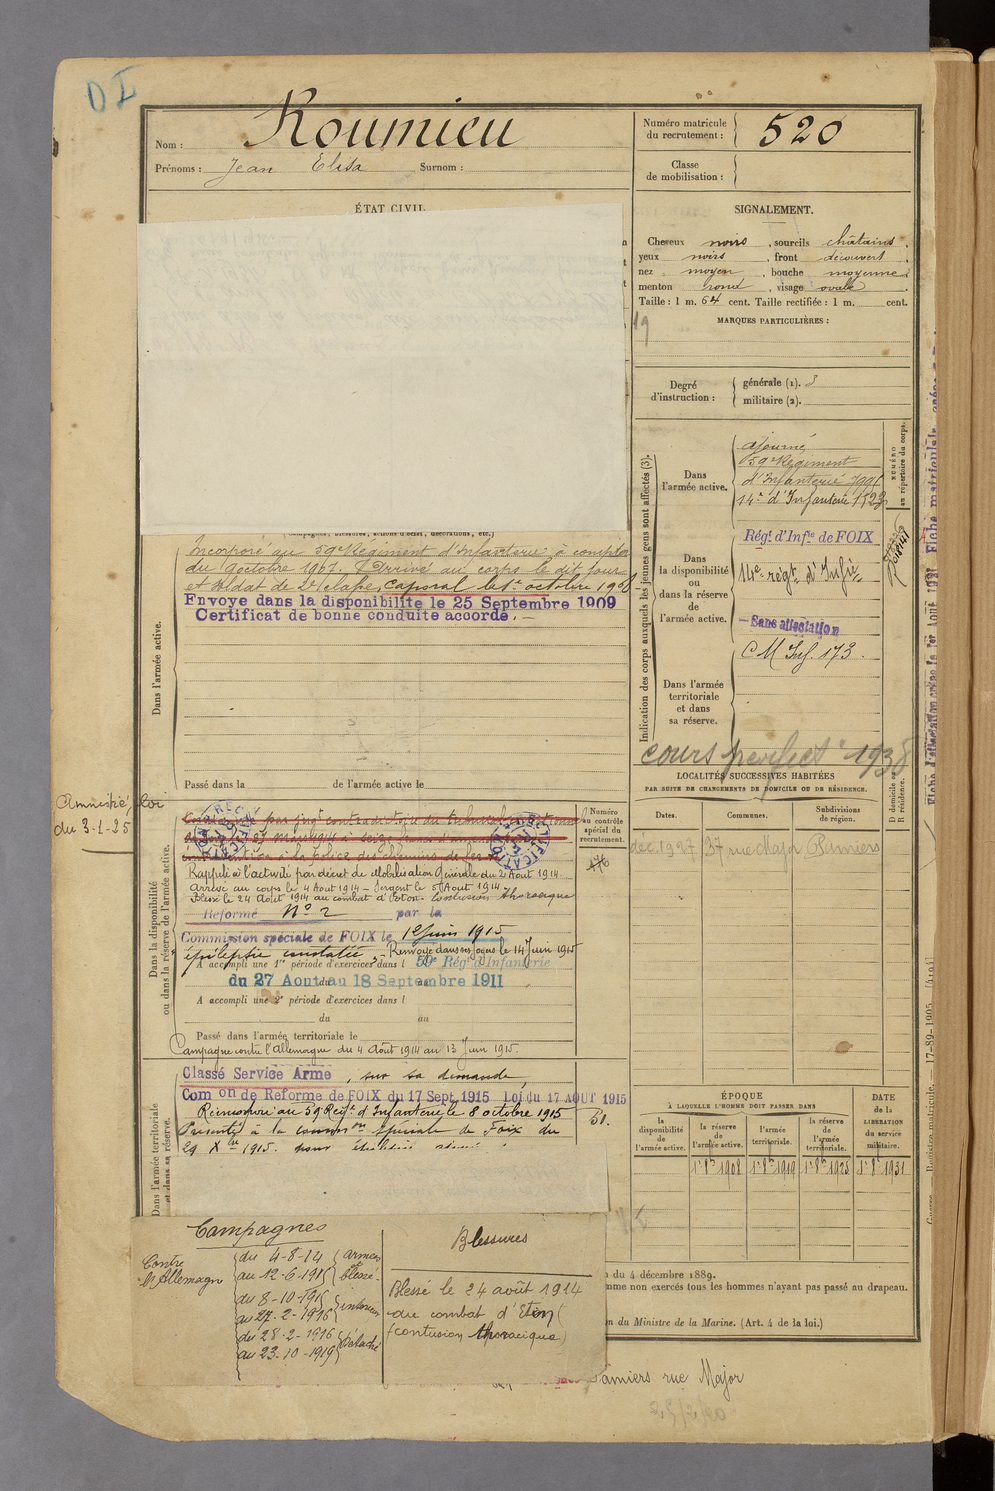 DI
Nom : Roumieu
Prénoms : Jean Elisa Surnom :
Numéro matricule
du recrutement : 520
Classe
de mobilisation :
ÉTAT CIVIL
SIGNALEMENT.
Cheveux noirs, sourcils châtains,
yeux noirs, front découvert,
nez moyen, bouche moyenne,
menton rond, visage ovale.
Taille : 1 m. 64 cent. Taille rectifiée : 1 m. cent.
MARQUES PARTICULIÈRES :
19
Degré
d'instruction :
générale (1). 3
militaire (2).
Indication des corps auxquels les jeunes gens sont affectés (3).
NUMÉRO
au répertoire du corps.
Dans
l'armée active.
ajourné
59e Régiment
d'Infanterie
14e d'Infanterie 1123
Dans
la disponibilité
ou
dans la réserve
de
l'armée active.
Régt d'Infie de FOIX
14e régt d'Infie
— Sans affectation
C M Inf. 173.
Dans l'armée
territoriale
et dans
sa réserve.
cours perfect 1938
Incorporé au 59e Régiment d'Infanterie à compter
du 9 octobre 1907. Arrivé au corps le dit jour
et soldat de 2e classe, caporal le 1er octobre 1908
Envoye dans la disponibilite le 25 Septembre 1909
Certificat de bonne conduite accordé. —
Dans l'armée active.
Passé dans la de l'armée active le
LOCALITÉS SUCCESSIVES HABITÉES
PAR SUITE DE CHANGEMENTS DE DOMICILE OU DE RÉSIDENCE.
Dates. Communes. Subdivisions
de région.
D domicile ou
R résidence.
dec 1927 37 rue Major Pamiers
Amnistié, loi
du 3-1-25
Dans la disponibilité
ou dans la réserve de l'armée active.
Numéro
au contrôle
spécial du
recrutement.
Rappelé à l'activité par décret de Mobilisation Générale du 2 Aout 1914.
Arrivé au corps le 4 Aout 1914 — Sergent le 5 Aout 1914
Blessé le 24 Août 1914 au combat d'Eton — Contusion thoracique
Réformé No 2 par la
Commission spéciale de FOIX le 12 Juin 1915
épilepsie constatée — Renvoyé dans ses foyers le 14 Juin 1915
A accompli une 1re période d'exercices dans l 59e Régt d'Infanterie
du 27 Aout au 18 Septembre 1911
A accompli une 2e période d'exercices dans l
du au
Passé dans l'armée territoriale le
Campagne contre l'Allemagne du 4 Août 1914 au 13 Juin 1915.
Dans l'armée territoriale
et dans sa réserve.
Classé Service Armé, sur sa demande,
Comon de Reforme de FOIX du 17 Sept. 1915 Loi du 17 AOUT 1915
Réincorporé au 59 Régt d'Infanterie le 8 octobre 1915
Présenté à la Common spéciale de Foix du
29 Xbre 1915. pour
ÉPOQUE
À LAQUELLE L'HOMME DOIT PASSER DANS
la
disponibilité
de
l'armée active.
la
réserve
de
l'armée active.
l'armée
territoriale.
la
réserve
de
l'armée
territoriale.
DATE
de la
LIBÉRATION
du service
militaire.
1r 8bre 1908 1r 8bre 1919 1r 8bre 1925 1r 8bre 1931
Campagnes
Contre
l'Allemagne
du 4-8-14
au 12-6-1915
armées
blessé.
du 8-10-1915
au 27-2-1916
intérieur
du 28-2-1916
au 23-10-1919
Détaché
Blessures
Blessé le 24 août 1914
au combat d'Eton
(contusion thoracique)
du 4 décembre 1889.
mme non exercés tous les hommes n'ayant pas passé au drapeau.
on du Ministre de la Marine. (Art. 4 de la loi.)
Pamiers rue Major